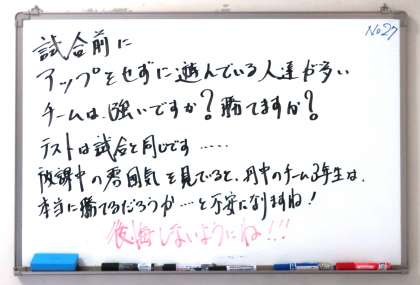 No27
試合前に
アップをせずに遊んでいる人達が多い
チームは、強いですか?勝てますか?
テストは試合と同じです……
放課中の雰囲気を見ていると、中のチーム3年生は、
本当に勝てるだろうか…と不安になりますね!
後悔しないようにね!!!